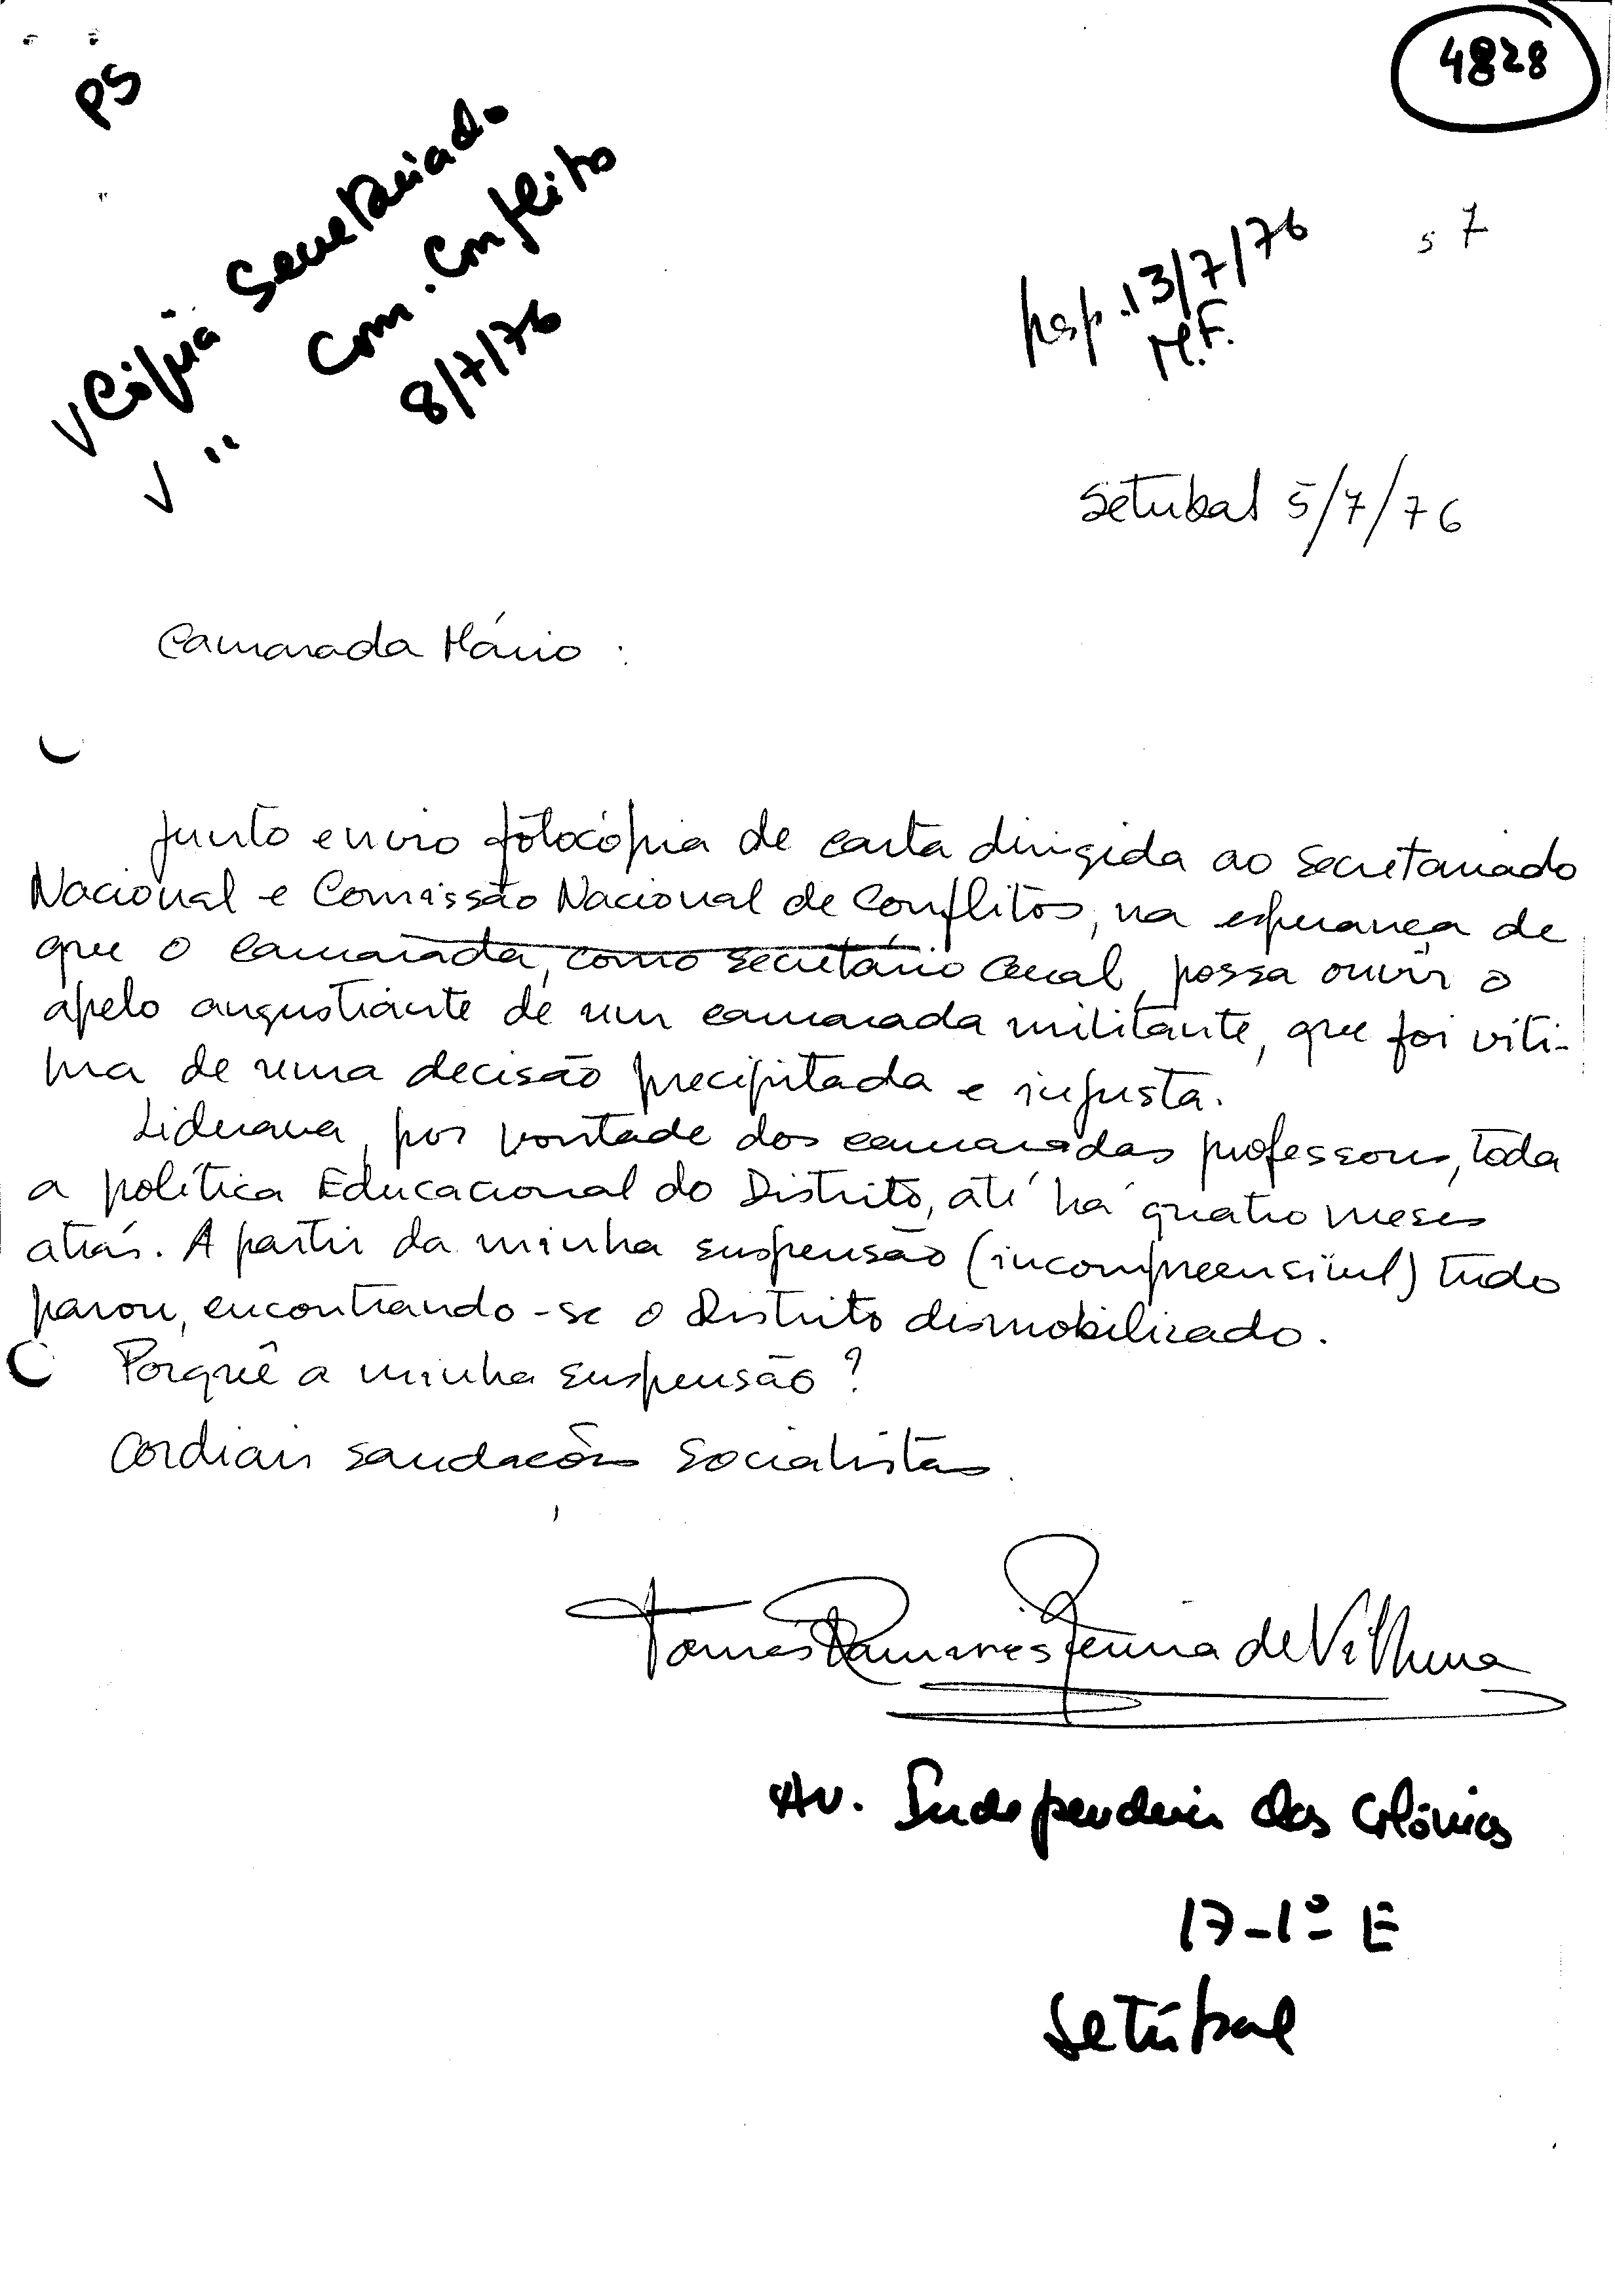 4828
PS
V Cópia Secretariado
V " Com. Conflito
8/7/76
Resp. 13/7/76
M.F.
5 7
Setubal 5/7/76
Camarada Mário :
Junto envio fotocópia de carta dirigida ao Secretariado
Nacional e Comissão Nacional de Conflitos, na esperança de
que o camarada, como secretário Geral, possa ouvir o
apelo angustiante de um camarada militante, que foi víti-
ma de uma decisão precipitada e injusta.
Liderava, por vontade dos camaradas professores, toda
a política Educacional do Distrito, até há quatro meses
atrás. A partir da minha suspensão (incompreensível) tudo
parou, encontrando-se o Distrito desmobilizado.
Porquê a minha suspensão ?
Cordiais saudações socialistas.
Tomás Ramires Ferreira de Vilhena
Av. Independência das Colónias
17-1º E
Setúbal